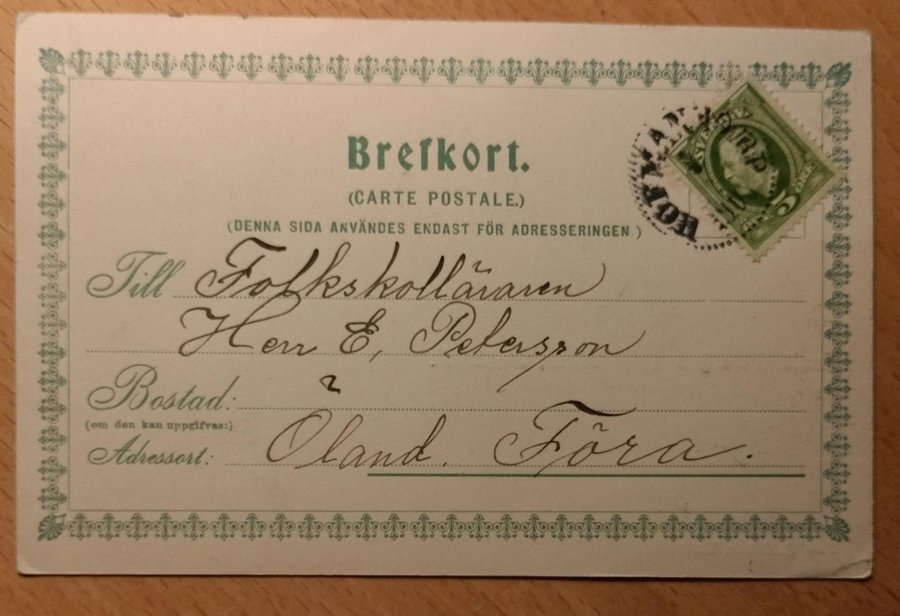 Brefkort.
(CARTE POSTALE.)
(DENNA SIDA ANVÄNDES ENDAST FÖR ADRESSERINGEN.)
Till Folkskolläraren
Herr E, Petersson
Bostad:
(om den kan uppgifvas:)
Adressort: Öland. Föra.
5